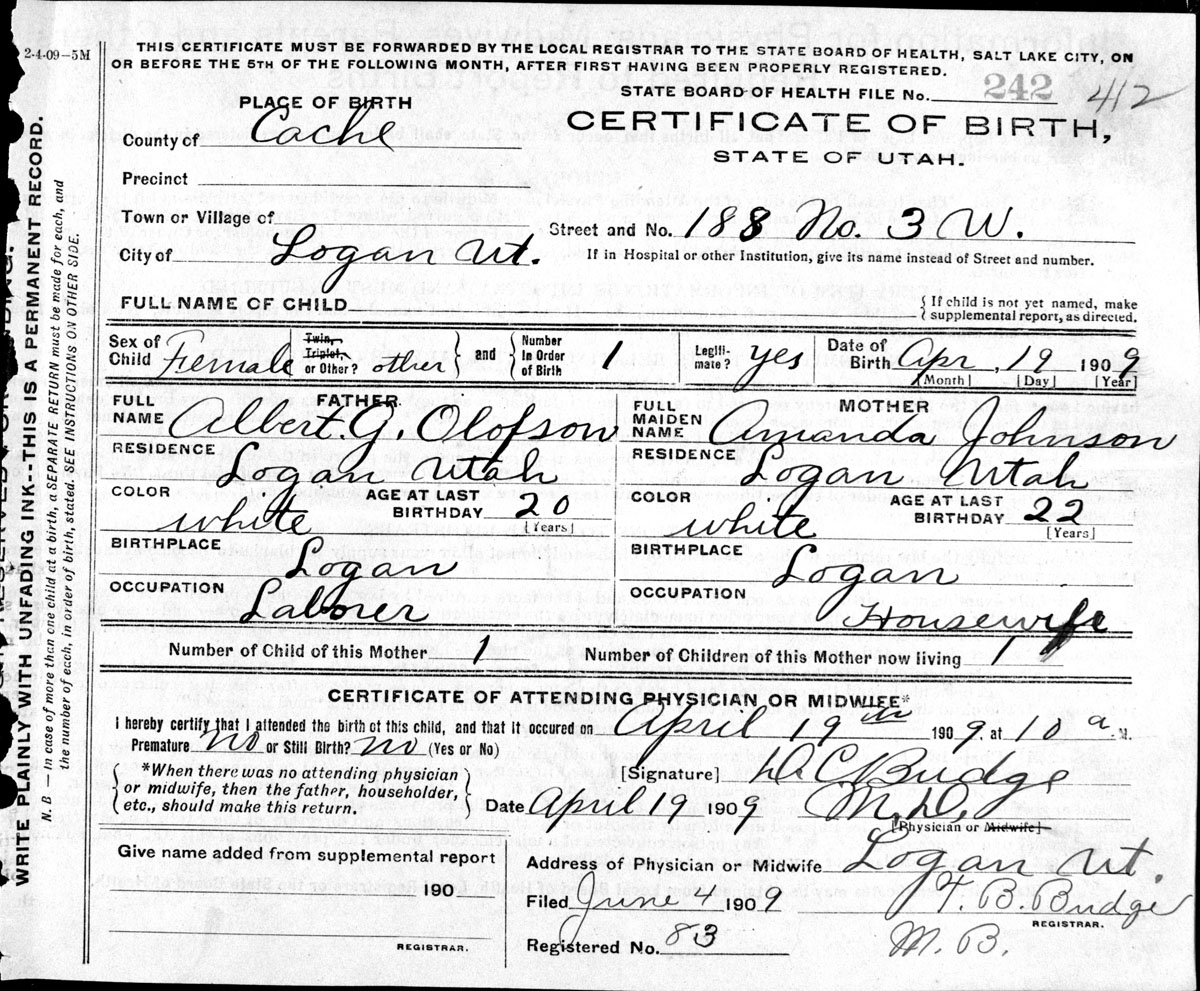 2-4-09-5M
THIS CERTIFICATE MUST BE FORWARDED BY THE LOCAL REGISTRAR TO THE STATE BOARD OF HEALTH, SALT LAKE CITY, ON
OR BEFORE THE 5TH OF THE FOLLOWING MONTH, AFTER FIRST HAVING BEEN PROPERLY REGISTERED.
STATE BOARD OF HEALTH FILE No. 242 412
PLACE OF BIRTH
CERTIFICATE OF BIRTH,
STATE OF UTAH.
County of Cache
Precinct
Town or Village of
Street and No. 188 No. 3 W.
City of Logan Ut.
If in Hospital or other Institution, give its name instead of Street and number.
FULL NAME OF CHILD
{ If child is not yet named, make
supplemental report, as directed.
Sex of Child Female Twin, Triplet, or Other? other } and { Number in Order of Birth 1 Legiti-mate? yes Date of Birth Apr, 19 1909
[Month] [Day] [Year]
FATHER.
FULL NAME Albert. G. Olofson
RESIDENCE Logan Utah
COLOR white AGE AT LAST BIRTHDAY 20
[Years]
BIRTHPLACE Logan
OCCUPATION Laborer
MOTHER
FULL MAIDEN NAME Amanda Johnson
RESIDENCE Logan Utah
COLOR white AGE AT LAST BIRTHDAY 22
[Years]
BIRTHPLACE Logan
OCCUPATION Housewife
Number of Child of this Mother 1 Number of Children of this Mother now living 1
CERTIFICATE OF ATTENDING PHYSICIAN OR MIDWIFE*
I hereby certify that I attended the birth of this child, and that it occured on April 19th 1909, at 10 a. M.
Premature no or Still Birth? no (Yes or No)
{ *When there was no attending physician
or midwife, then the father, householder,
etc., should make this return. }
[Signature] D C Budge
Date April 19 1909 M.D.
[Physician or Midwife]
Give name added from supplemental report
190
REGISTRAR.
Address of Physician or Midwife Logan Ut.
Filed June 4 1909 T. B. Budge
REGISTRAR.
Registered No. 83 M. B.
WRITE PLAINLY WITH UNFADING INK--THIS IS A PERMANENT RECORD.
N. B — In case of more than one child at a birth, a SEPARATE RETURN must be made for each, and
the number of each, in order of birth, stated. SEE INSTRUCTIONS ON OTHER SIDE.